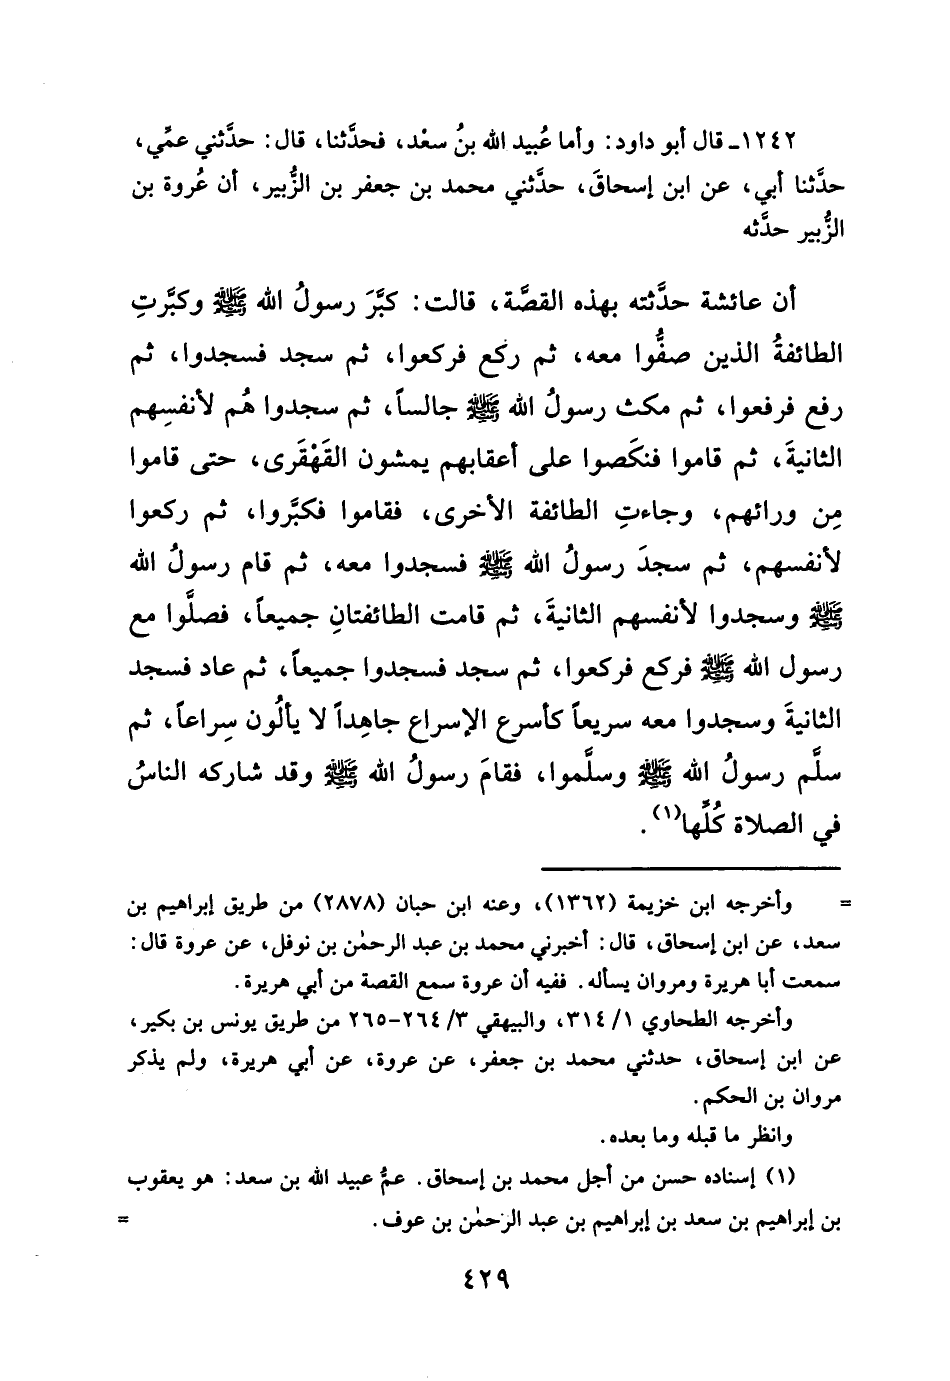 ١٢٤٢ـ قال أبو داود: وأما عُبيد الله بنُ سعْد، فحدَّثنا، قال: حدَّثني عمِّي،
حدَّثنا أبي، عن ابن إسحاقَ، حدَّثني محمد بن جعفر بن الزُّبير، أن عُروة بن
الزُّبير حدَّثه
أن عائشة حدَّثته بهذه القصَّة، قالت: كبَّرَ رسولُ الله ﷺ وكبَّرتِ
الطائفةُ الذين صفُّوا معه، ثم ركع فركعوا، ثم سجد فسجدوا، ثم
رفع فرفعوا، ثم مكث رسولُ الله ﷺ جالساً، ثم سجدوا هُم لأنفسِهم
الثانيةَ، ثم قاموا فنكَصوا على أعقابهم يمشون القَهْقَرى، حتى قاموا
مِن ورائهم، وجاءتِ الطائفة الأخرى، فقاموا فكبَّروا، ثم ركعوا
لأنفسهم، ثم سجدَ رسولُ الله ﷺ فسجدوا معه، ثم قام رسولُ الله
ﷺ وسجدوا لأنفسهم الثانيةَ، ثم قامت الطائفتانِ جميعاً، فصلَّوا مع
رسول الله ﷺ فركع فركعوا، ثم سجد فسجدوا جميعاً، ثم عاد فسجد
الثانيةَ وسجدوا معه سريعاً كأسرع الإسراع جاهِداً لا يألُون سِراعاً، ثم
سلَّم رسولُ الله ﷺ وسلَّموا، فقامَ رسولُ الله ﷺ وقد شاركه الناسُ
في الصلاة كُلِّها(١).
= وأخرجه ابن خزيمة (١٣٦٢)، وعنه ابن حبان (٢٨٧٨) من طريق إبراهيم بن
سعد، عن ابن إسحاق، قال: أخبرني محمد بن عبد الرحمٰن بن نوفل، عن عروة قال:
سمعت أبا هريرة ومروان يسأله. ففيه أن عروة سمع القصة من أبي هريرة.
وأخرجه الطحاوي ١/ ٣١٤، والبيهقي ٣/ ٢٦٤-٢٦٥ من طريق يونس بن بكير،
عن ابن إسحاق، حدثني محمد بن جعفر، عن عروة، عن أبي هريرة، ولم يذكر
مروان بن الحكم.
وانظر ما قبله وما بعده.
(١) إسناده حسن من أجل محمد بن إسحاق. عمُّ عبيد الله بن سعد: هو يعقوب
بن إبراهيم بن سعد بن إبراهيم بن عبد الرحمٰن بن عوف. =
٤٢٩